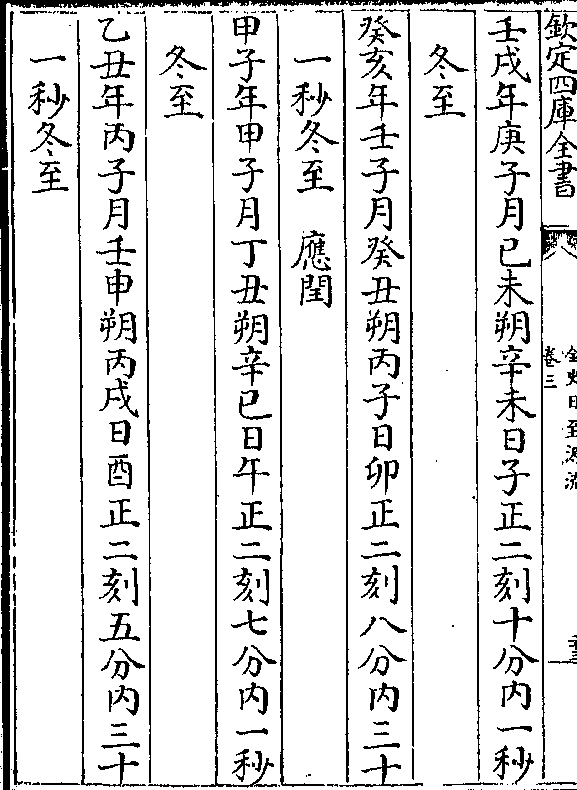 欽定四庫全書
卷三
壬戌年庚子月己未朔辛未日子正二刻十分内一秒
冬至
癸亥年壬子月癸丑朔丙子日卯正二刻八分内三十
一秒冬至 應閏
甲子年甲子月丁丑朔辛巳日午正二刻七分内一秒
冬至
乙丑年丙子月壬申朔丙戌日酉正二刻五分内三十
一秒冬至